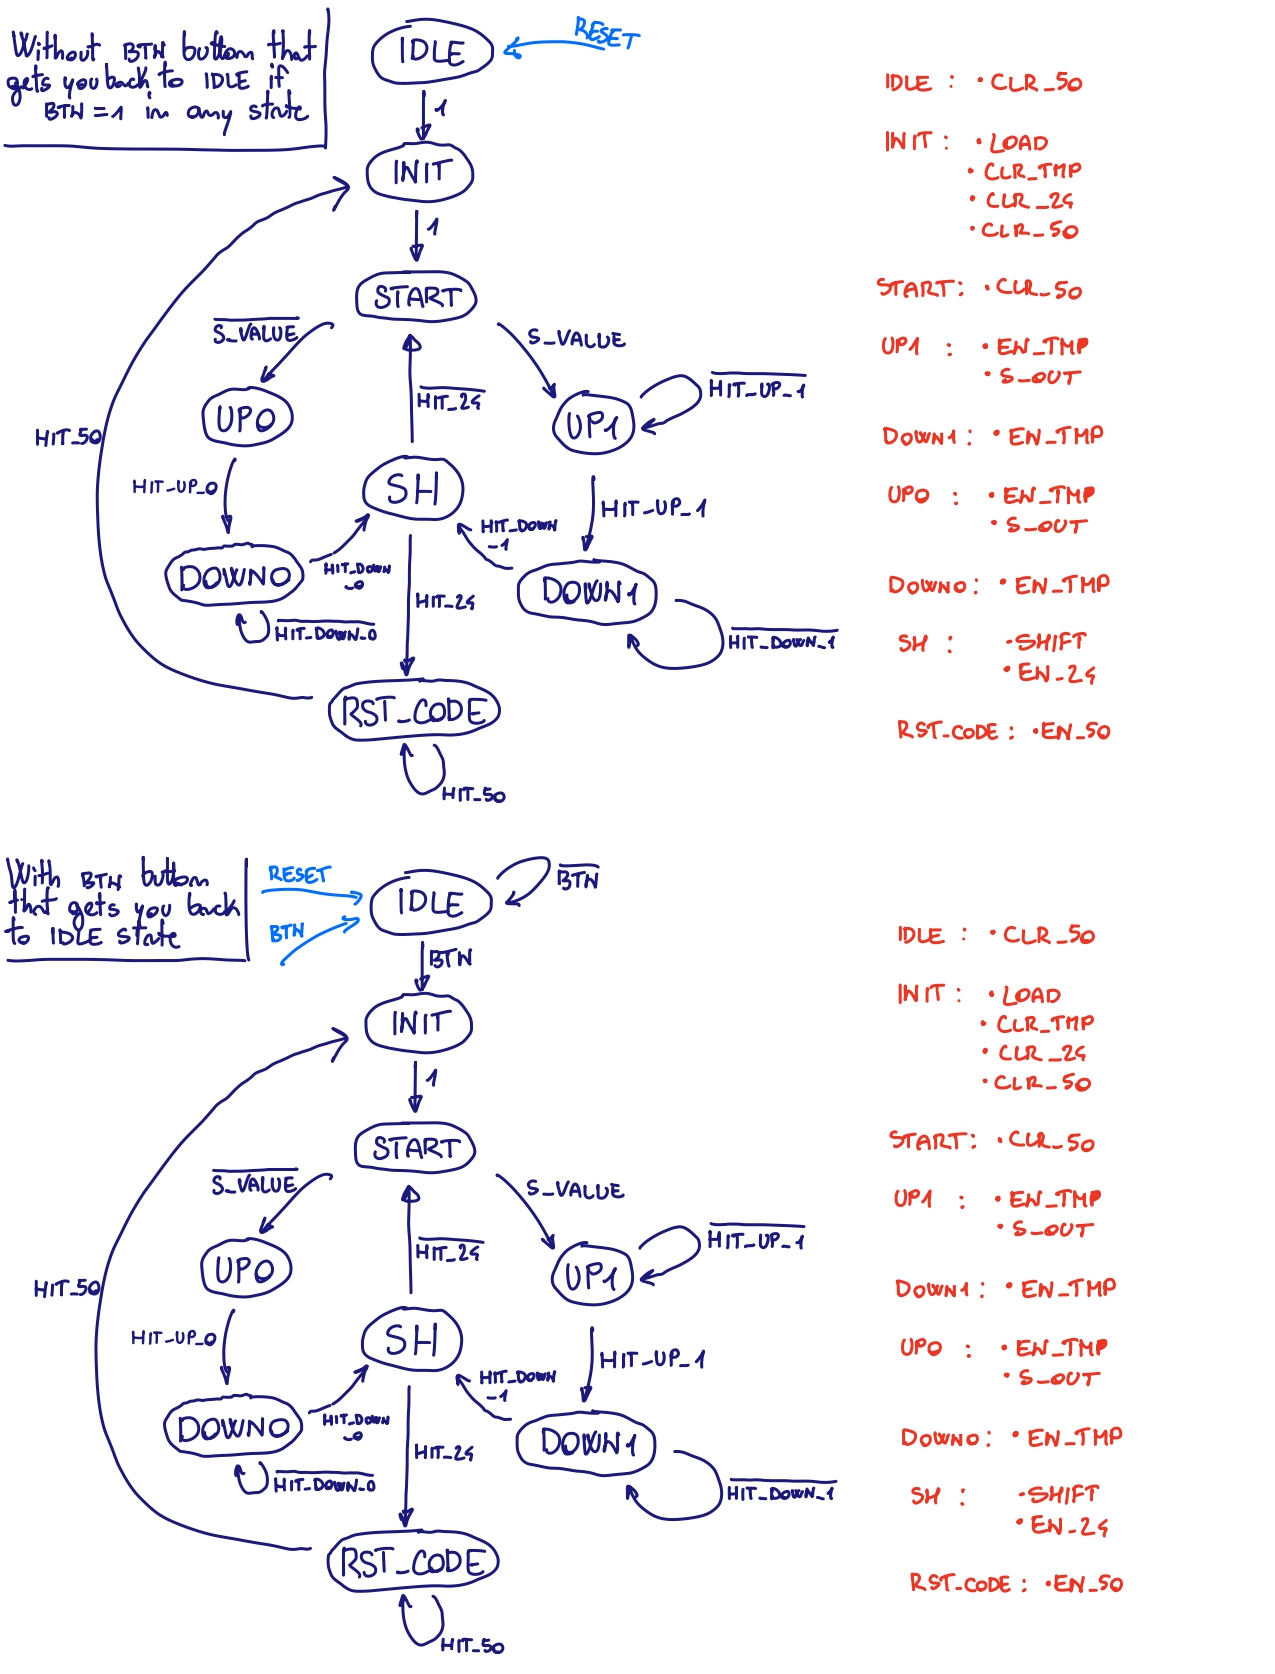 Without BTN button that
gets you back to IDLE if
BTN = 1 in any state
RESET
IDLE
1
INIT
1
START
S_VALUE
S_VALUE
UP0
HIT_24
UP1
HIT_UP_1
HIT_50
HIT_UP_0
SH
HIT_UP_1
HIT_DOWN
_1
DOWN0
HIT_DOWN
_0
DOWN1
HIT_24
HIT_DOWN_0
HIT_DOWN_1
RST_CODE
HIT_50
IDLE : • CLR_50
INIT : • LOAD
• CLR_TMP
• CLR_24
• CLR_50
START: • CLR_50
UP1 : • EN_TMP
• S_OUT
DOWN1: • EN_TMP
UP0 : • EN_TMP
• S_OUT
DOWN0: • EN_TMP
SH : • SHIFT
• EN_24
RST_CODE : • EN_50
With BTN button
that gets you back
to IDLE state
RESET
BTN
IDLE
BTN
BTN
INIT
1
START
S_VALUE
S_VALUE
UP0
HIT_24
UP1
HIT_UP_1
HIT_50
HIT_UP_0
SH
HIT_UP_1
HIT_DOWN
_1
DOWN0
HIT_DOWN
_0
DOWN1
HIT_24
HIT_DOWN_0
HIT_DOWN_1
RST_CODE
HIT_50
IDLE : • CLR_50
INIT : • LOAD
• CLR_TMP
• CLR_24
• CLR_50
START: • CLR_50
UP1 : • EN_TMP
• S_OUT
DOWN1: • EN_TMP
UP0 : • EN_TMP
• S_OUT
DOWN0: • EN_TMP
SH : • SHIFT
• EN_24
RST_CODE : • EN_50